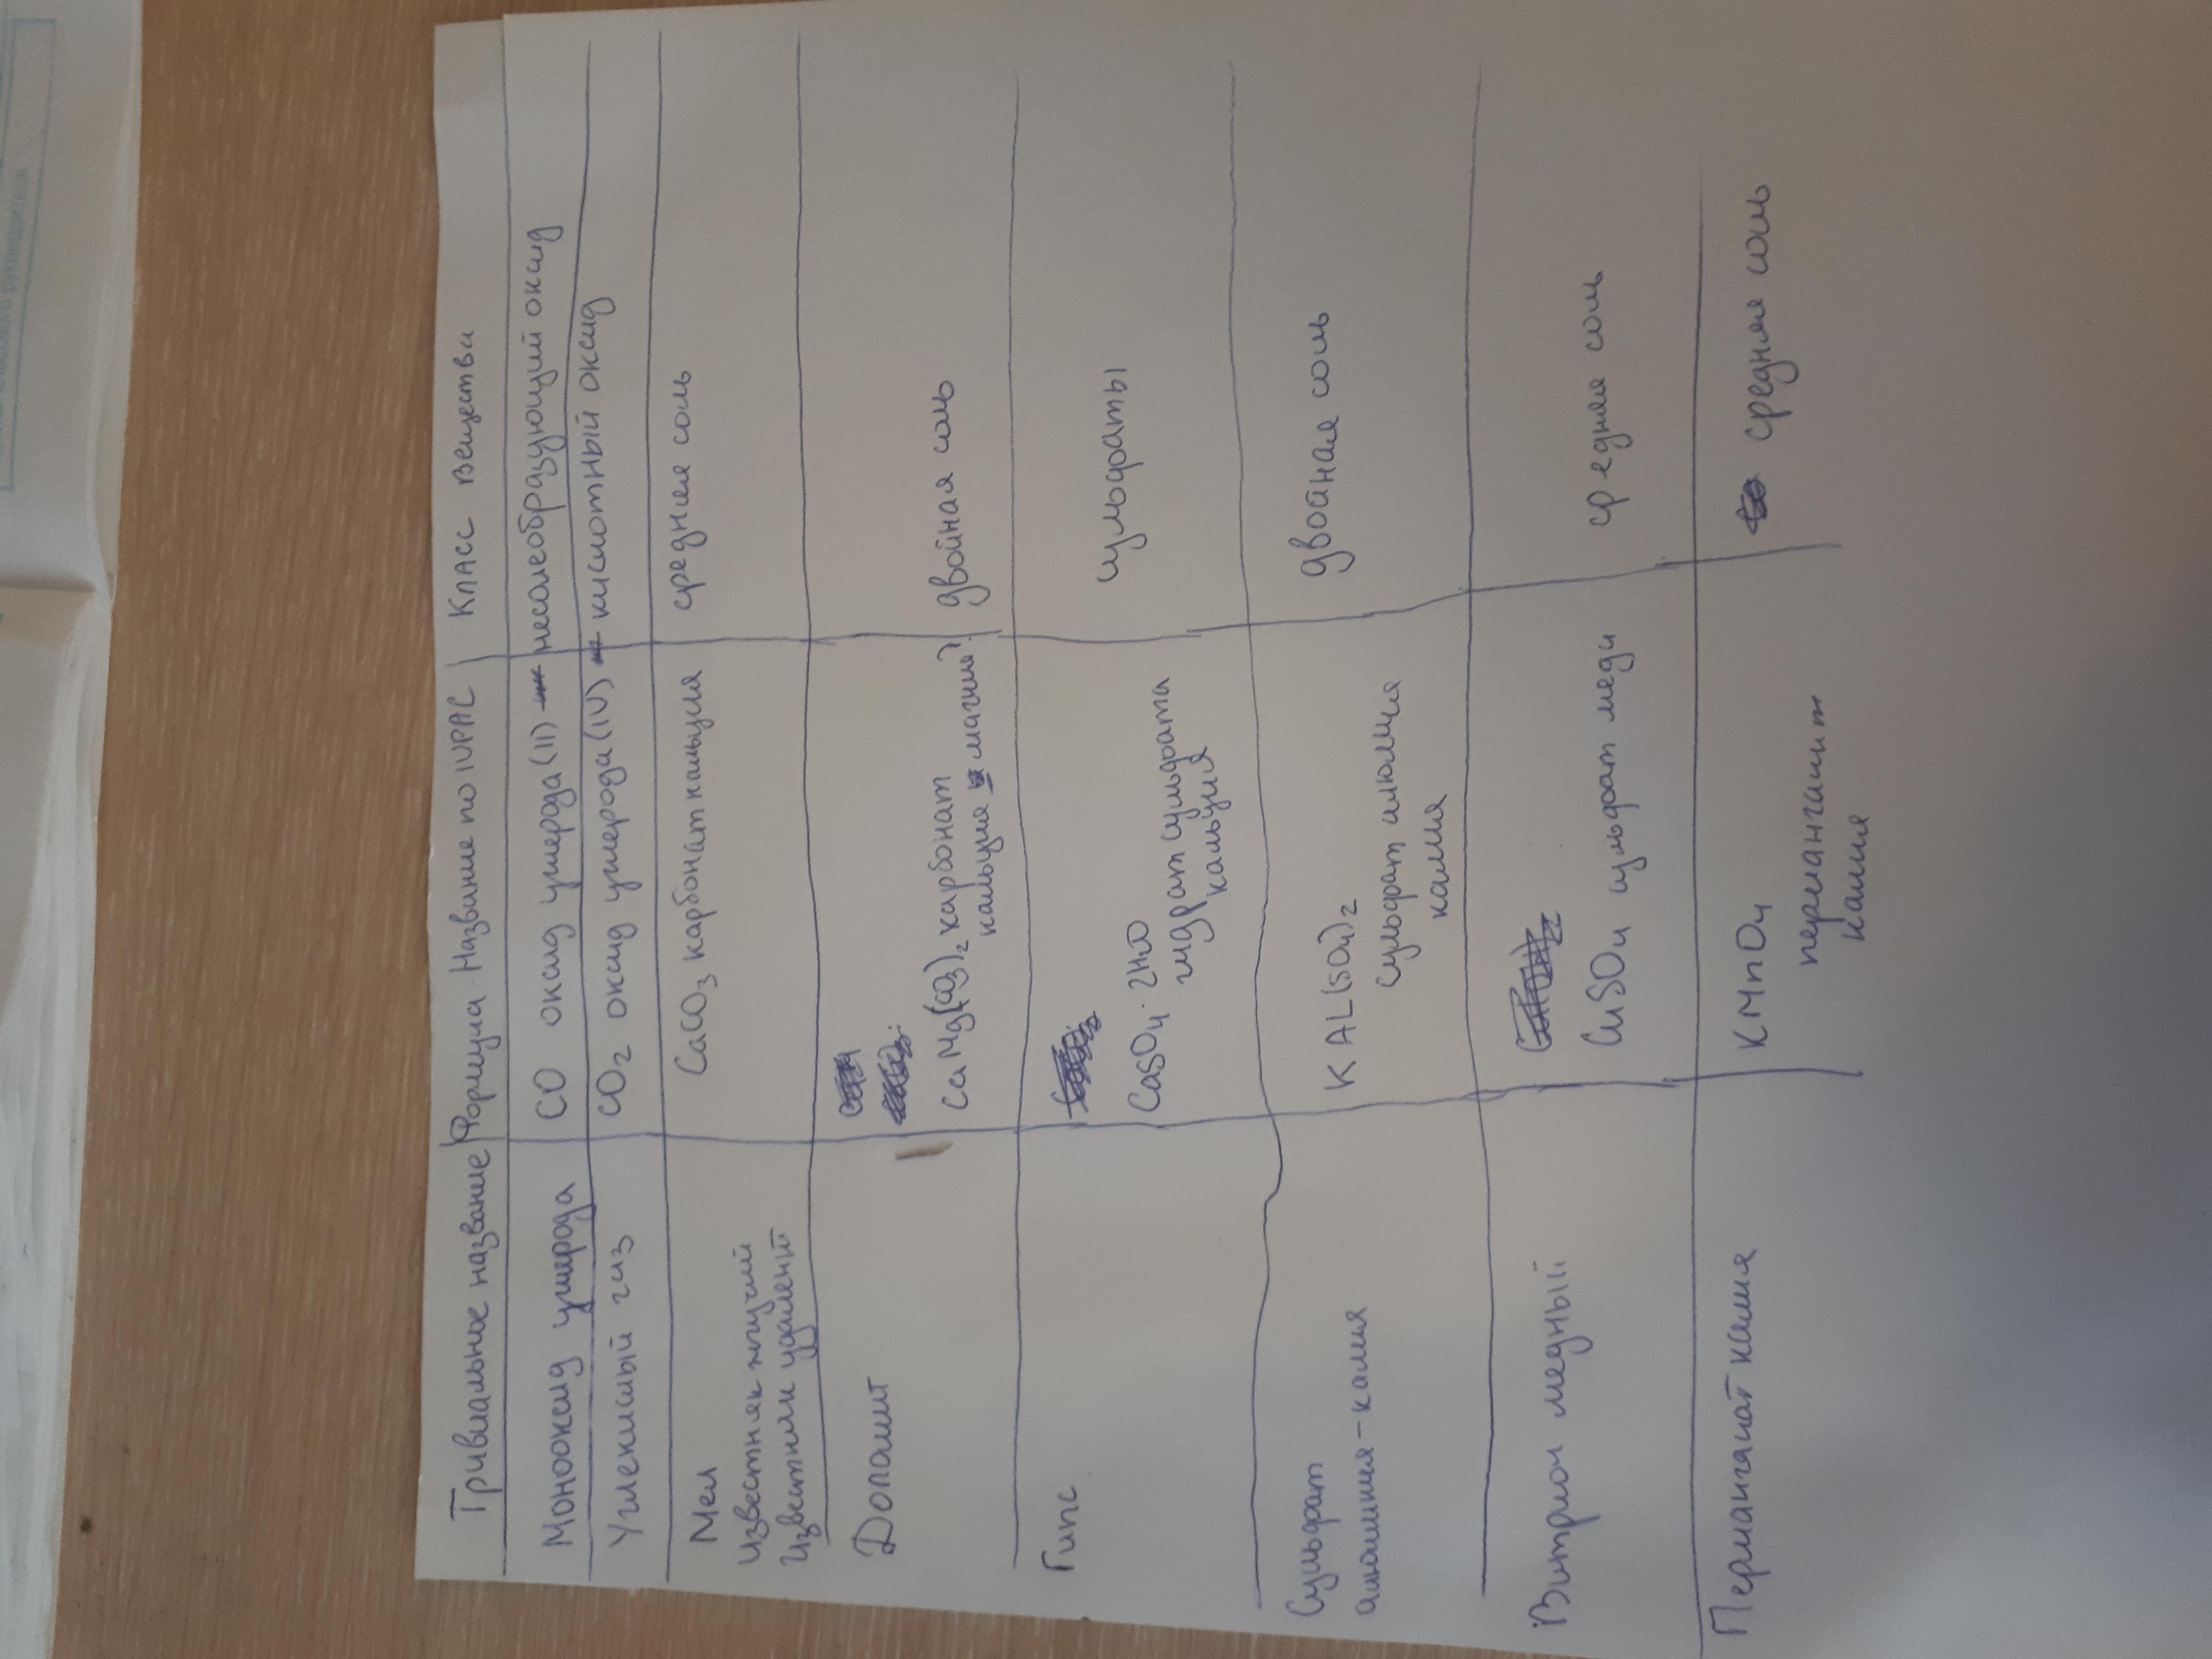 Тривиальное название Формула Название по IUPAC Класс вещества
Монооксид углерода CO оксид углерода (II) несолеобразующий оксид
Углекислый газ CO2 оксид углерода (IV) кислотный оксид
Мел CaCO3 карбонат кальция средняя соль
Известняк
Доломит CaMg(CO3)2 карбонат двойная соль
кальция магния
Гипс CaSO4 · 2H2O сульфаты
гидрат сульфата
кальция
Сульфат KAL(SO4)2 двойная соль
алюминия-калия сульфат алюминия
калия
Витриол медный CuSO4 сульфат меди средняя соль
Перманганат калия KMnO4 средняя соль
перманганат
калия